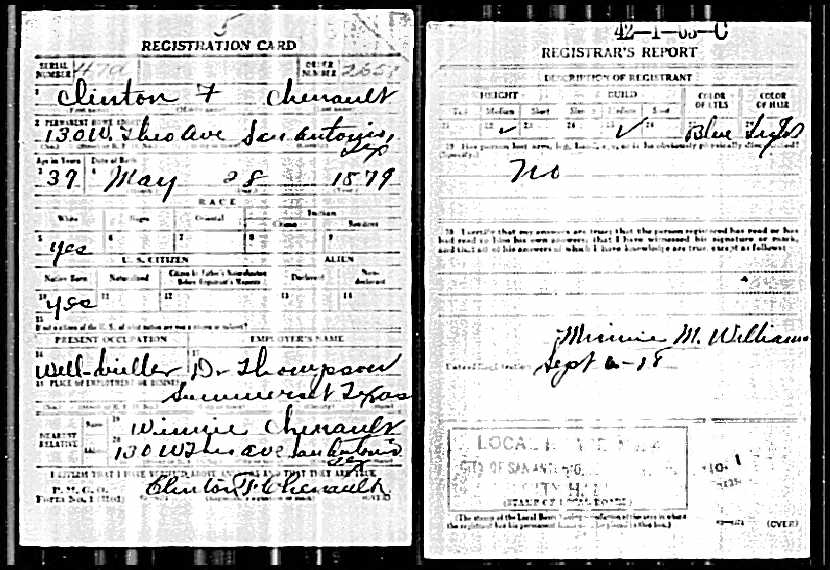 5
REGISTRATION CARD
SERIAL NUMBER 470
ORDER NUMBER
1 Clinton F Chenault
2 PERMANENT HOME ADDRESS
130 W. Theo Ave San Antonio, Tex
Age in Years Date of Birth
3 39 4 May 28 1879
RACE
White Negro Oriental Indian
Citizen
5 yes 6 7 8 9
U. S. CITIZEN ALIEN
Native Born Naturalized Citizen by Father's Naturalization Before Registrant's Majority Declarant Non-declarant
10 yes 11 12 13 14
15
If not a citizen of the U. S., of what nation are you a citizen or subject?
PRESENT OCCUPATION EMPLOYER'S NAME
16 Well-driller 17 Dr Thompson
18 PLACE OF EMPLOYMENT OR BUSINESS
Summerset Texas
NEAREST RELATIVE
Name 19 Winnie Chenault
20 130 W Theo ave San Antonio Tex
I AFFIRM THAT I HAVE VERIFIED ABOVE ANSWERS AND THAT THEY ARE TRUE
P. M. G. O.
Form No. 1 (Red)
Clinton F Chenault
(OVER)
42-1-05-C
REGISTRAR'S REPORT
DESCRIPTION OF REGISTRANT
HEIGHT BUILD COLOR OF EYES COLOR OF HAIR
Tall Medium Short Slender Medium Stout
21 22 ✓ 23 24 25 ✓ 26 Blue
29 Has person lost arm, leg, hand, eye, or is he obviously physically disqualified?
(Specify.)
No
30 I certify that my answers are true; that the person registered has read or has
had read to him his own answers; that I have witnessed his signature or mark,
and that all of his answers of which I have knowledge are true, except as follows:
Minnie M. Williams
Date of Registration Sept
LOCAL
CITY OF SAN ANTONIO,
CITY H
(STAMP OF LOCAL BOARD)
(The stamp of the Local Board having jurisdiction of the area in which
the registrant has his permanent home shall be placed in this box.)
(OVER)